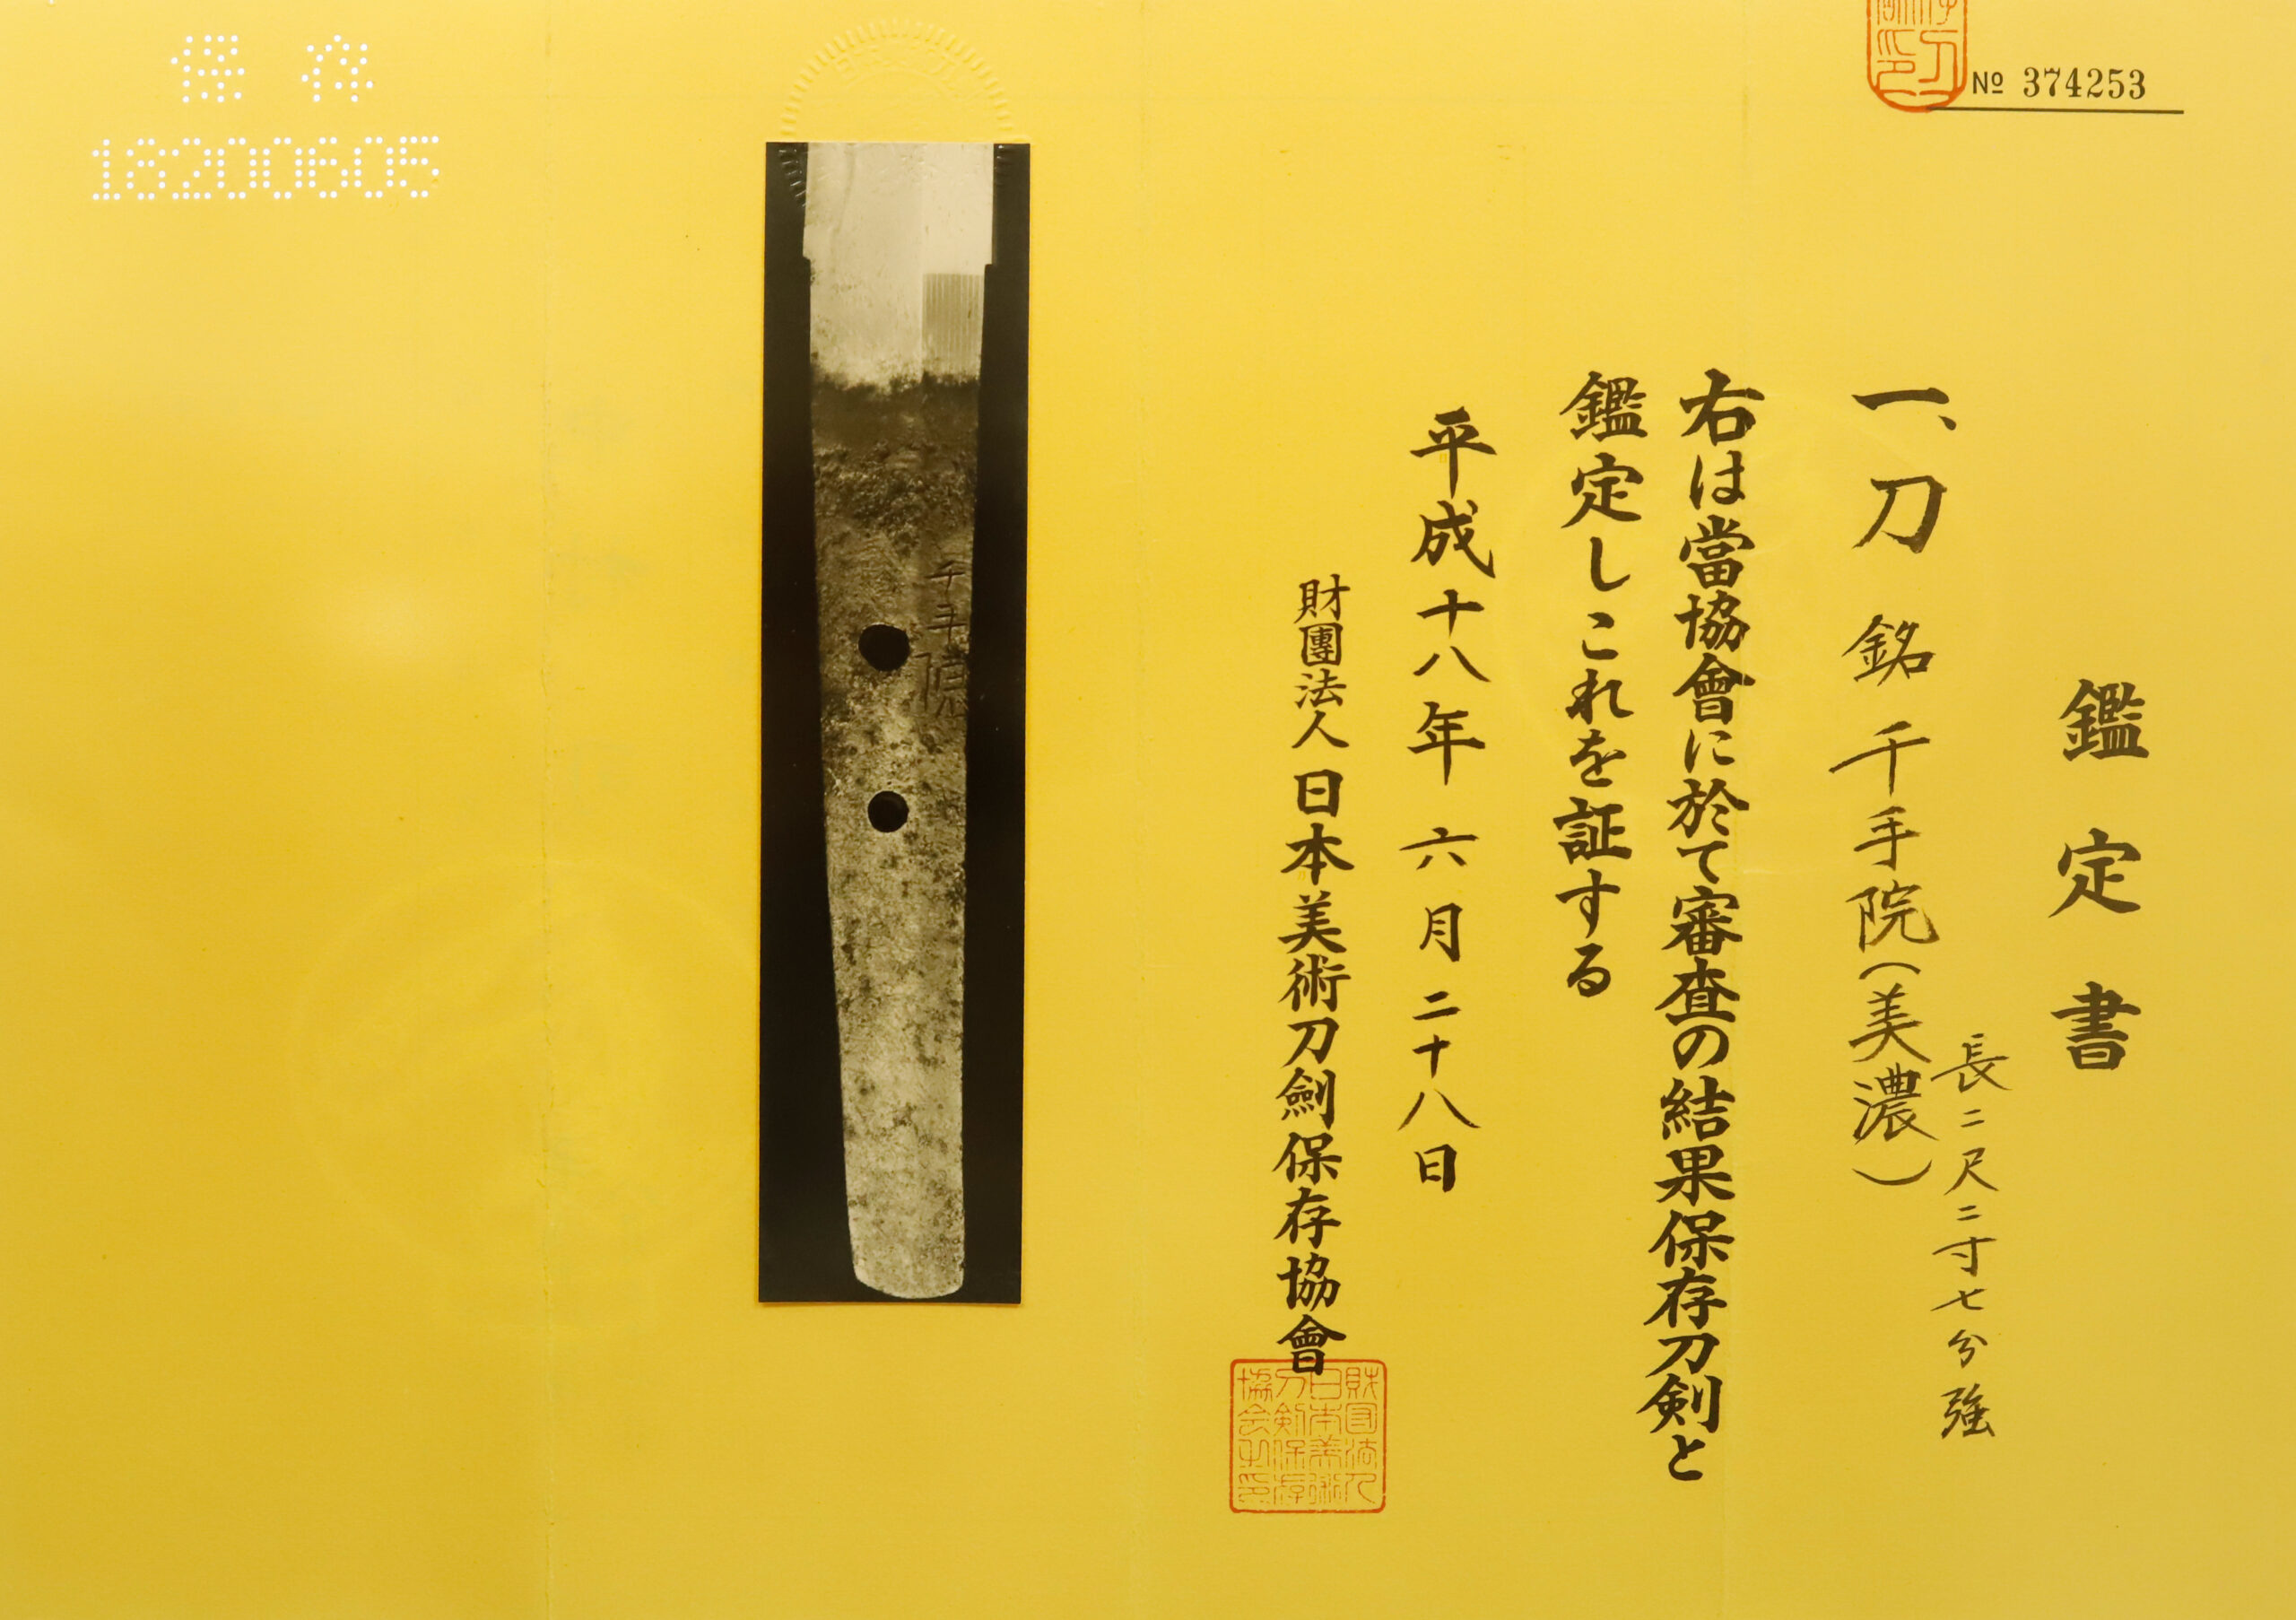 No 374253
鑑定書
一、刀 銘 千手院(美濃)
長二尺二寸七分強
右は當協會に於て審査の結果保存刀剣と
鑑定しこれを証する
平成十八年六月二十八日
財團法人日本美術刀劍保存協會
財団法人
日本美術
刀剣保存
協会之印
千手院
保存
18200605